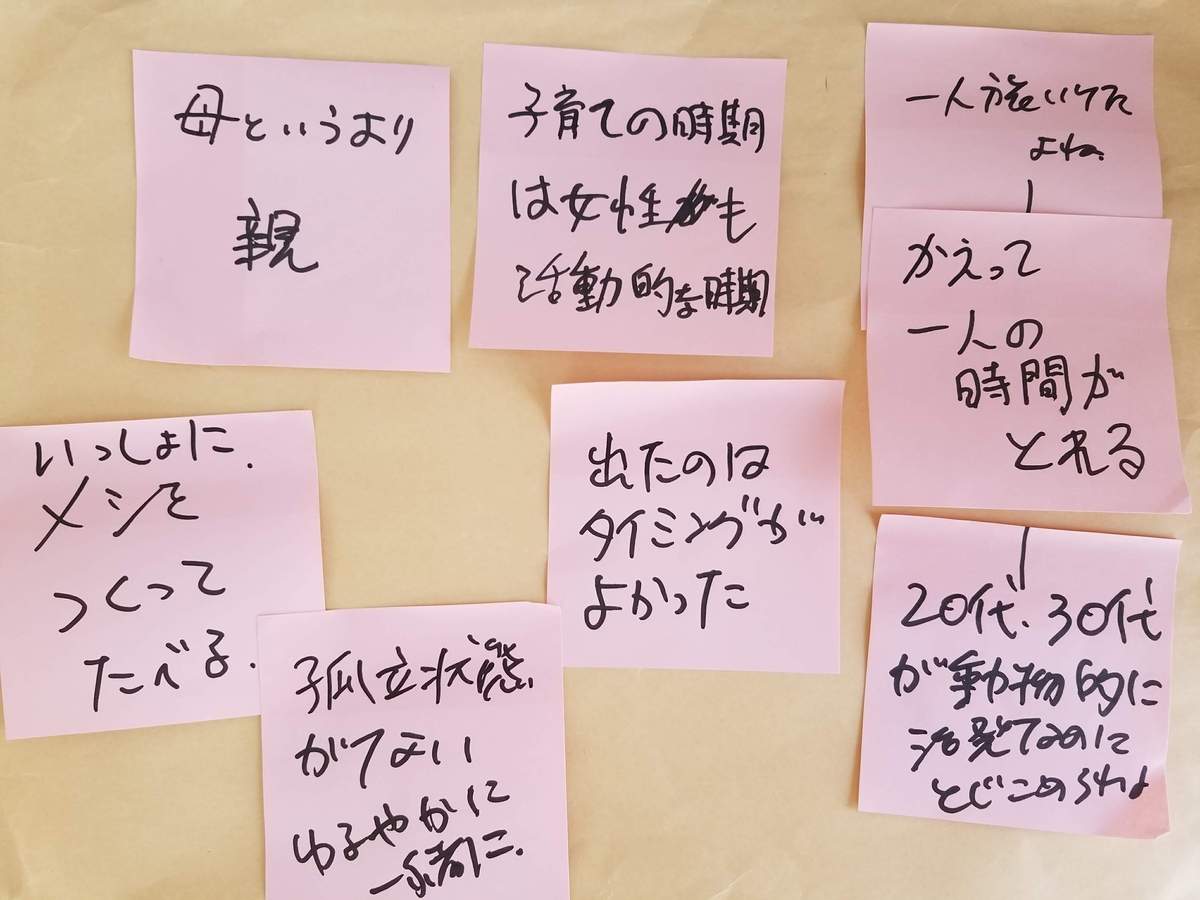 母というより
親
子育ての時期
は女性も
活動的な時期
一人旅いけた
よね
かえって
一人の
時間が
とれる
いっしょに.
メシを
つくって
たべる.
出たのは
タイミングが
よかった
20代.30代
が動物的に
活発なのに
とじこめられ
孤立状態
がない
ゆるやかに
一緒に.